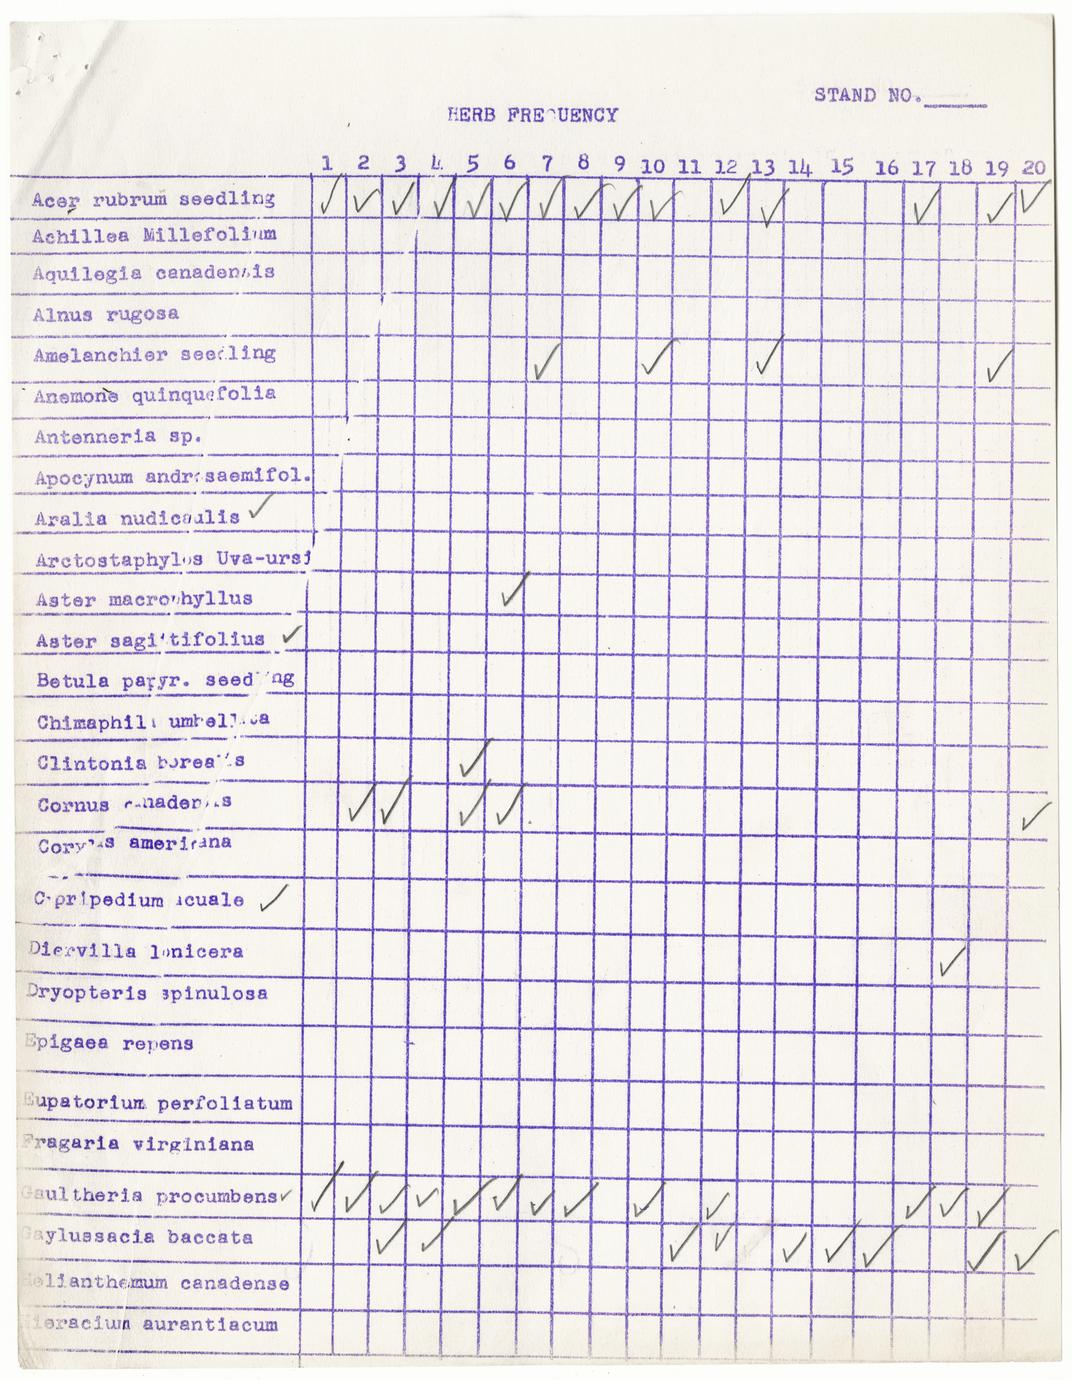 STAND NO.
HERB FREQUENCY
1 2 3 4 5 6 7 8 9 10 11 12 13 14 15 16 17 18 19 20
Acer rubrum seedling ✓ ✓ ✓ ✓ ✓ ✓ ✓ ✓ ✓ ✓ ✓ ✓ ✓ ✓ ✓
Achillea Millefolium
Aquilegia canadensis
Alnus rugosa
Amelanchier seedling ✓ ✓ ✓ ✓
Anemone quinquefolia
Antenneria sp.
Apocynum androsaemifol.
Aralia nudicaulis ✓
Arctostaphylos Uva-ursi
Aster macrophyllus ✓
Aster sagittifolius ✓
Betula papyr. seedling
Chimaphila umbellica
Clintonia borealis ✓
Cornus canadensis ✓ ✓ ✓ ✓ ✓
Corylus americana
Cypripedium acuale ✓
Diervilla lonicera ✓
Dryopteris spinulosa
Epigaea repens
Eupatorium perfoliatum
Fragaria virginiana
Gaultheria procumbens ✓ ✓ ✓ ✓ ✓ ✓ ✓ ✓ ✓ ✓ ✓ ✓ ✓ ✓
Gaylussacia baccata ✓ ✓ ✓ ✓ ✓ ✓ ✓ ✓ ✓
Helianthemum canadense
Hieracium aurantiacum